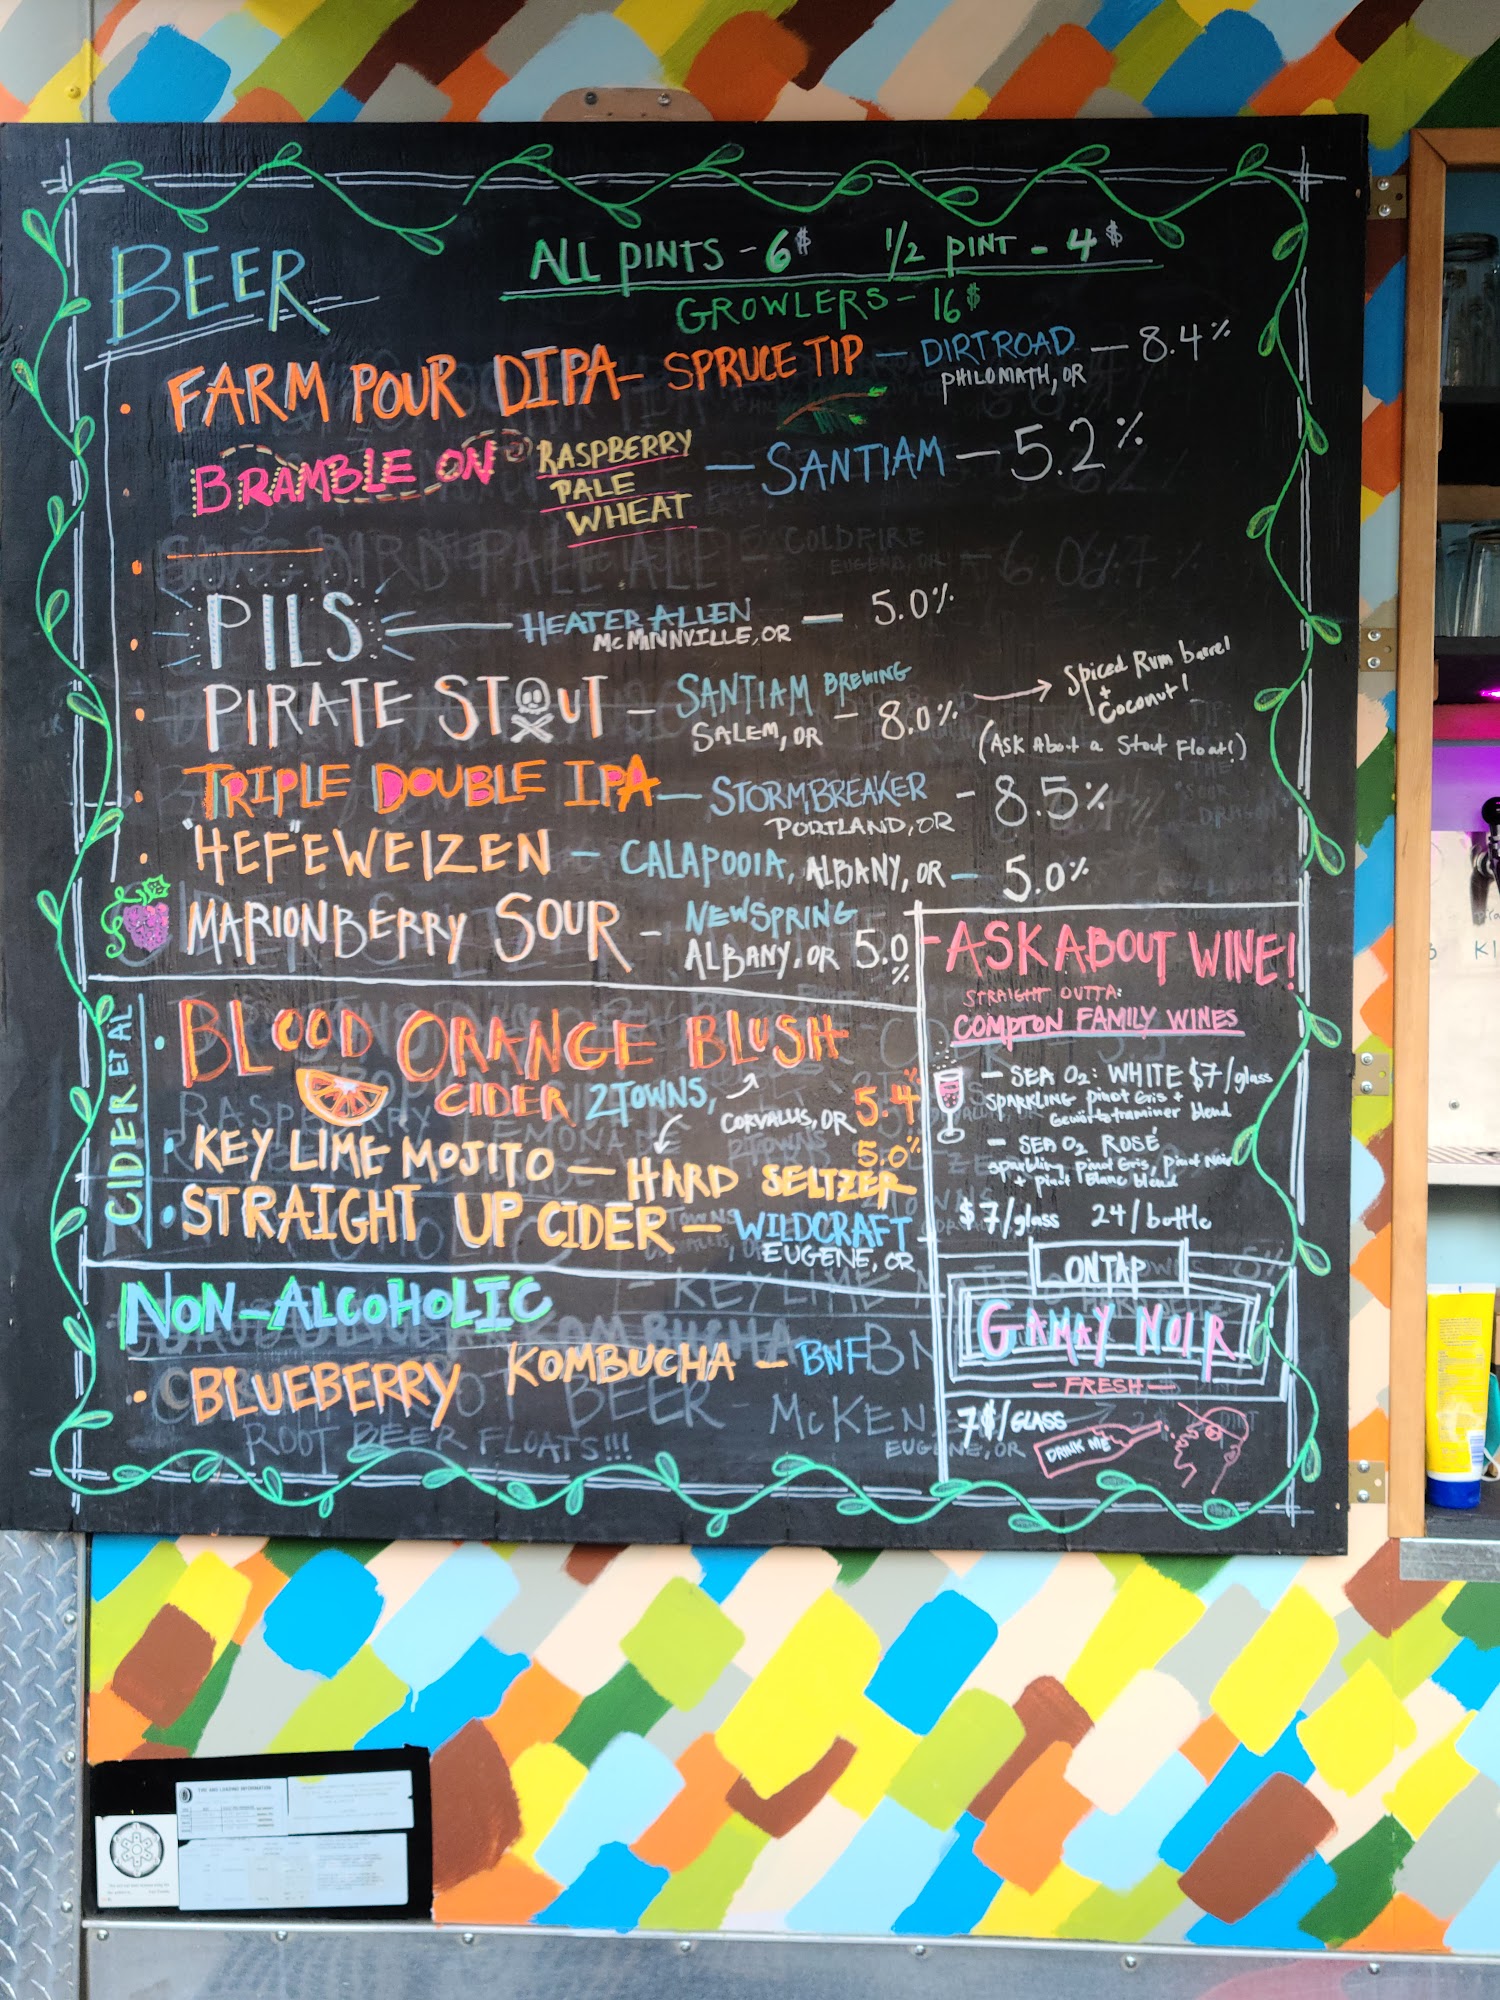 BEER
ALL PINTS - 6$ 1/2 PINT - 4$
GROWLERS - 16$
FARM POUR DIPA - SPRUCE TIP - DIRT ROAD - 8.4%
PHILOMATH, OR
BRAMBLE ON RASPBERRY PALE WHEAT - SANTIAM - 5.2%
BIRD PALE ALE - COLDFIRE
EUGENE, OR
PILS - HEATER ALLEN - 5.0%
McMINNVILLE, OR
PIRATE STOUT - SANTIAM BREWING - 8.0% → Spiced Rum barrel
SALEM, OR
+ Coconut!
(Ask About a Stout Float!)
TRIPLE DOUBLE IPA - STORMBREAKER - 8.5%
PORTLAND, OR
"HEFE"WEIZEN - CALAPOOIA, ALBANY, OR - 5.0%
MARIONBERRY SOUR - NEWSPRING
ALBANY, OR 5.0%
CIDER ET AL
BLOOD ORANGE BLUSH
CIDER 2TOWNS, CORVALLIS, OR 5.4%
KEY LIME MOJITO - HARD SELTZER 5.0%
STRAIGHT UP CIDER - WILDCRAFT
EUGENE, OR
NON-ALCOHOLIC
BLUEBERRY KOMBUCHA - BNF
ROOT BEER FLOATS!!!
EUGENE, OR
ASK ABOUT WINE!
STRAIGHT OUTTA:
COMPTON FAMILY WINES
- SEA O2: WHITE $7/glass
SPARKLING Pinot Gris +
Gewürztraminer blend
- SEA O2 ROSÉ
Sparkling Pinot Gris, Pinot Noir
+ pinot Blanc blend
$7/glass 24/bottle
ON TAP
GAMAY NOIR
- FRESH -
7$/GLASS
DRINK ME
TIRE AND LOADING INFORMATION